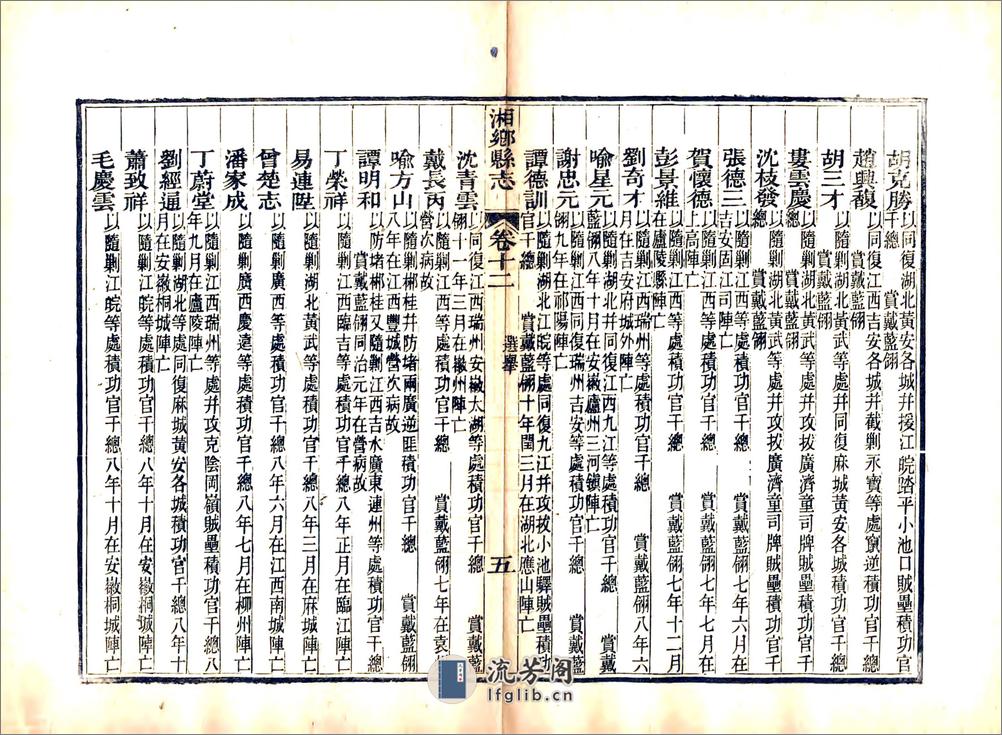 胡克勝 以同復湖北黃安各城幷援江皖踏平小池口賊壘積功官
千總 賞戴藍翎
趙興馥 以同復江西吉安各城幷截剿永寶等處竄逆積功官千總
賞戴藍翎
胡三才 以隨剿湖北黃武幷同復麻城黃安各城積功官千總
賞戴藍翎
婁雲慶 以隨剿湖北黃武等處幷攻拔廣濟童司牌賊壘積功官千
總 賞戴藍翎
沈枝發 以隨剿湖北黃武等處幷攻拔廣濟童司牌賊壘積功官千
總 賞戴藍翎
張德三 以隨剿江西等處積功官千總 賞戴藍翎七年六月在
吉安固江司陣亡
賀懷德 以隨剿江西等處積功官千總 賞戴藍翎七年七月在
上高陣亡
彭景維 以隨剿江西等處積功官千總 賞戴藍翎七年十二月
在廬陵縣陣亡
劉奇才 以隨剿江西瑞州等處積功官千總 賞戴藍翎八年六
月在吉安府城外陣亡
喻星元 以隨剿幷同復江西九江等處積功官千總 賞戴
藍翎八年十月在安徽廬州三河鎮陣亡
謝忠元 以隨剿江西同復瑞州吉安等處積功官千總 賞戴藍
翎九年在祁陽陣亡
譚德訓 以隨剿湖北江皖等處同復九江幷攻拔小池驛賊壘積功
官千總 賞戴藍翎十年閏三月在湖北應山陣亡
湘鄉縣志 卷十二 選舉 五
沈青雲 以同復江西瑞州安徽太湖等處積功官千總 賞戴藍
翎十一年三月在徽州陣亡
戴長丙 以隨剿江西等處積功官千總 賞戴藍翎七年在袁州
營次病故
喻方山 以隨剿郴桂幷防堵兩廣逆匪積功官千總 賞戴藍翎
八年在江西豐城營次病故
譚明和 以防堵郴桂又隨剿江西吉水廣東連州等處積功官千總
賞戴藍翎同治元年在營病故
丁榮祥 以隨剿江西臨吉等處積功官千總八年正月在臨江陣亡
易連陞 以隨剿湖北黃武等處積功官千總八年三月在麻城陣亡
曾楚志 以隨剿廣西等處積功官千總八年六月在江西南城陣亡
潘家成 以隨剿廣西慶遠等處積功官千總八年七月在柳州陣亡
丁蔚堂 以隨剿江西瑞州等處幷攻克陰岡嶺賊壘積功官千總八
年九月在廬陵陣亡
劉經逼 以隨剿湖北等處同復麻城黃安各城積功官千總八年十
月在安徽桐城陣亡
蕭致祥 以隨剿江皖等處積功官千總八年十月在安徽桐城陣亡
毛慶雲 以隨剿江皖等處積功官千總八年十月在安徽桐城陣亡
流芳阁
lfglib.cn